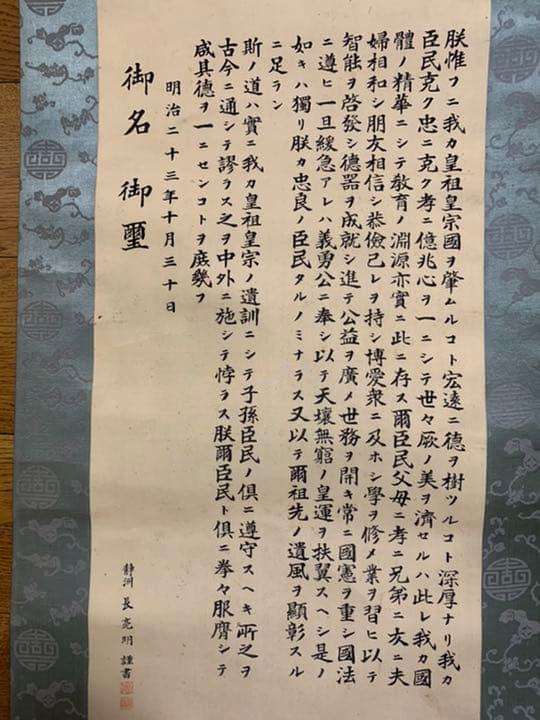 朕惟フニ我カ皇祖皇宗國ヲ肇ムルコト宏遠ニ德ヲ樹ツルコト深厚ナリ我カ
臣民克ク忠ニ克ク孝ニ億兆心ヲ一ニシテ世々厥ノ美ヲ濟セルハ此レ我カ國
體ノ精華ニシテ教育ノ淵源亦實ニ此ニ存ス爾臣民父母ニ孝ニ兄弟ニ友ニ夫
婦相和シ朋友相信シ恭儉己レヲ持シ博愛衆ニ及ホシ學ヲ修メ業ヲ習ヒ以テ
智能ヲ啓發シ德器ヲ成就シ進テ公益ヲ廣メ世務ヲ開キ常ニ國憲ヲ重シ國法
ニ遵ヒ一旦緩急アレハ義勇公ニ奉シ以テ天壤無窮ノ皇運ヲ扶翼スヘシ是ノ
如キハ獨リ朕カ忠良ノ臣民タルノミナラス又以テ爾祖先ノ遺風ヲ顯彰スル
ニ足ラン
斯ノ道ハ實ニ我カ皇祖皇宗ノ遺訓ニシテ子孫臣民ノ俱ニ遵守スヘキ所之ヲ
古今ニ通シテ謬ラス之ヲ中外ニ施シテ悖ラス朕爾臣民ト俱ニ拳々服膺シテ
咸其德ヲ一ニセンコトヲ庶幾フ
明治二十三年十月三十日
御名 御璽
靜洲 長亮明 謹書